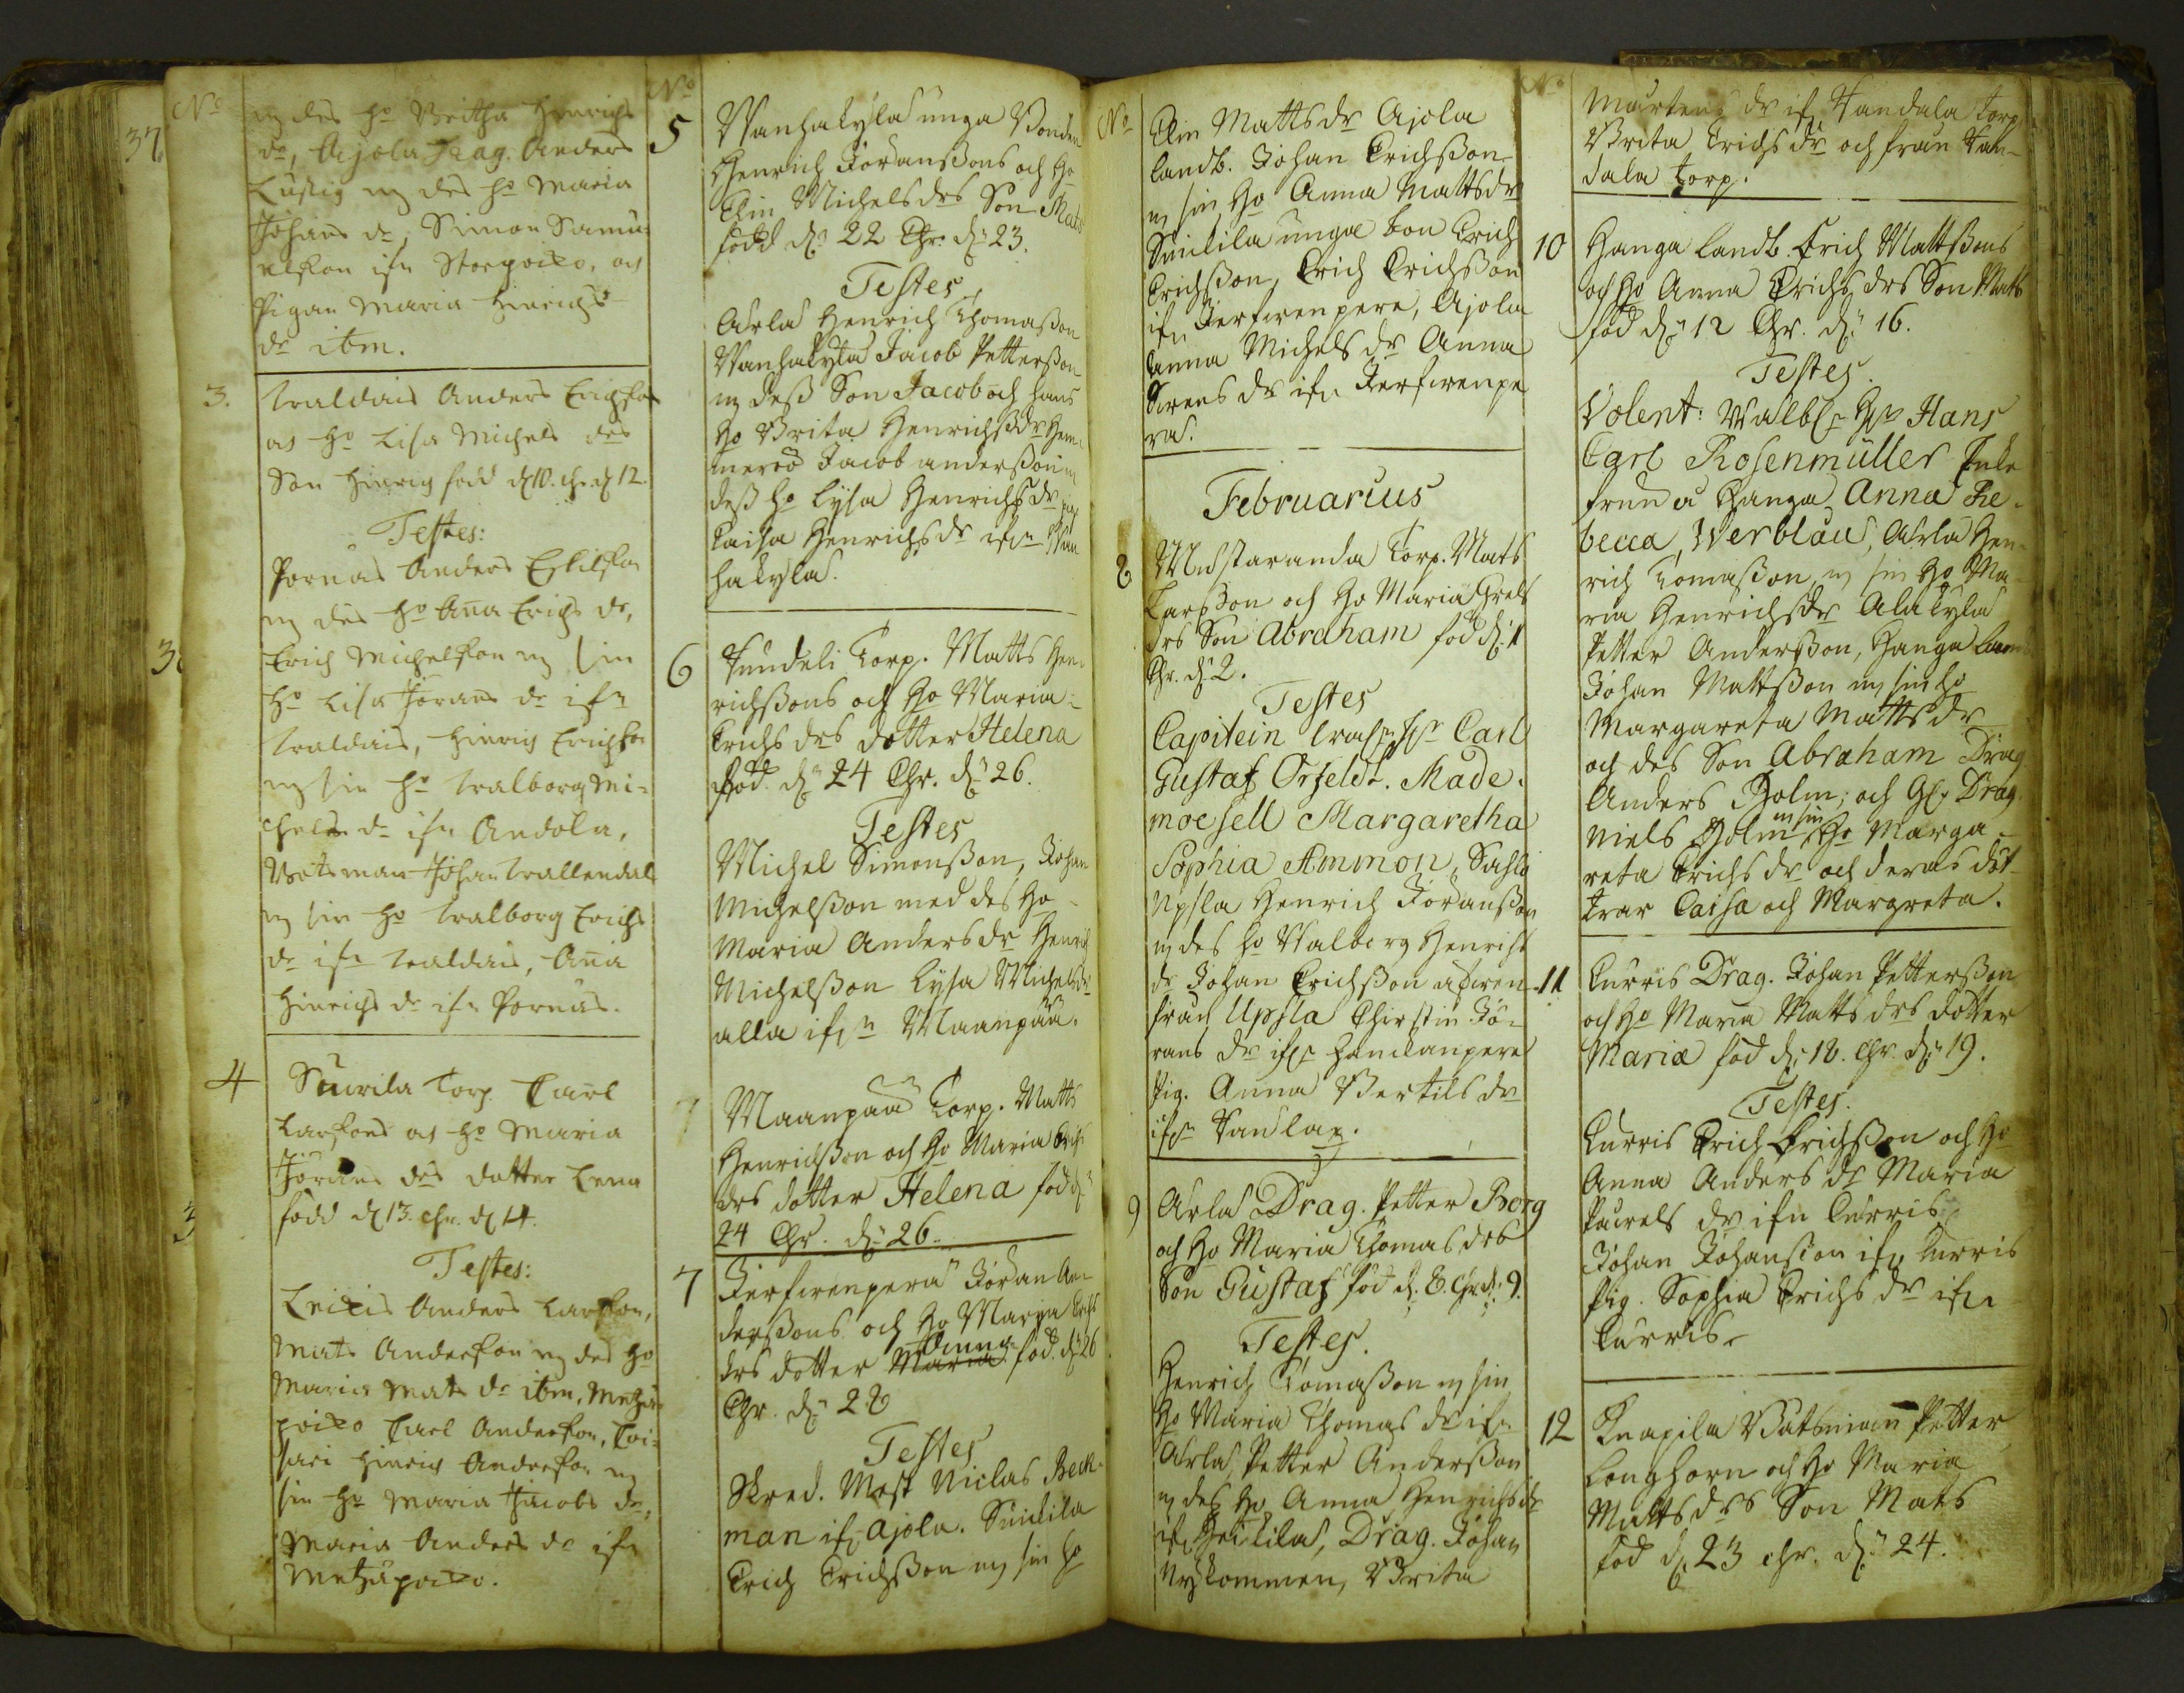 No
m des ho Britha Henrichs
dr, Ajola Drag. Anders
Lustig m des ho Maria
Johans dr, Simon Samu-
elsson ifn Storpoixo, och
Pigan Maria Hinrichs
dr ibm.
3. Waldais Anders Erichson
och ho Lisa Michels drs
Son Hinrich född d 10. chr d 12.
Testes:
Pornas Anders Eskilsson
m des ho Aña Erichs dr,
Erich Michelsson m sin
ho Lisa Jörans dr ifn
Waldais, Hinrich Erichson
m sin ho Walborg Mi-
chels dr ifn Andola,
Botsman Johan Wallendal
m sin ho Walborg Erichs
dr ifn Waldais, Aña
Hinrichs dr ifn Pornas.
4 Suirila Torp. Carl
Larssons och ho Maria
Jörans drs dotter Lena
född d 13. chr. d 14.
Testes:
Leikis Anders Larsson,
Mats Andersson m des ho
Maria Mats dr ibm, Metzä-
poixo Carl Andersson,
Hinrich Andersson m
sin ho Maria Jacobs dr,
Maria Anders dr ifn
Metzäpoixo.
No
5 Wanhakylä unga Bonden
Henrich Jöranssons och Ho
Elin Michelsdrs Son Mats
född dn 22 Chr. dn 23.
Testes
Arla Henrich Thomasson
Wanhakylä Jacob Pettersson
m dess Son Jacob och hans
Ho Brita Henrichsdr
Jacob andersson m
dess ho Lysa Henrichsdr
Caisa Henrichsdr ifrn Wan
hakylä.
6 Tundeli Torp. Matts Hen-
richssons och Ho Maria
Erichs drs dotter Helena
född. dn 24 Chr. dn 26.
Testes
Michel Simonsson, Johan
Michelsson med des Ho
Maria Andersdr Henrich
Michelsson Lysa Michelsdr
alla ifrn Maanpää.
7 Maanpää Torp. Matts
Henrichsson och Ho Maria Erichs
drs dotter Helena född dn
24 Chr. dn 26.
7 Jerfwenperä Jöran An-
derssons och Ho Maria Erichs
Anna
drs dotter Maria född. dn 26
Chr. dn 28
Testes
Skred. Mest Niclas Beck-
man ifn Ajola. Suikila
Erich Erichsson m sin ho
No
Elin Mattsdr Ajola
landb. Johan Erichsson
m sin Ho Anna Mattsdr
Suikila unga bon Erich
Erichsson, Erich Erichsson
ifn Jerfwenpere, Ajola
Anna Michelsdr Anna
Sirens dr ifn Jerfwenpe
rä.
Februarius
8 Mustaranda Torp. Mats
Larsson och Ho Maria Grels
drs Son Abraham född dn 1
Chr. dn 2.
Testes
Capitein Carl
Gustaf Orfeldt. Made-
moesell Margaretha
Sophia Ammon,
Upsla Henrich Joransson
m des ho Walborg Henrichs
dr Johan Erichsson
från Upsla Chirstin Jö-
rans dr ifrn Hanilanpere
Pig. Anna Bertils dr
ifrn Vaulax.
9 Arla Drag. Petter Borg
och Ho Maria Thomas drs
Son Gustaf född d: 8. Chr d: 9.
Testes.
Henrich Tomasson m sin
Ho Maria Thomas dr ifn
Arla, Petter Andersson
m des Ho Anna Henrichsdr
ifn Heikilä, Drag. Johan
Nykommen, Brita
No
Mårtens dr ifn Tandala torp
Brita Erichs dr och från Tan-
dala torp.
10 Hanga landb. Erich Mattssons
och Ho Anna Erichs drs Son Mats
född dn 12 Chr. dn 16.
Testes.
Volent: Walb Hr Hans
Carl Rosenmüller Enke
frun å Hanga Anna Re-
becca, Werblau, Arla Hen-
rich Tomasson m sin Ho Ma-
ria Henrichsdr Alakylä
Petter Andersson, Hanga
Johan Mattsson m sin ho
Margareta Mattsdr
och des Son Abraham Drag
Anders Holm, och Gl. Drag
m sin
Niels Holm Ho Marga-
reta Erichs dr och deras döt-
trar Caisa och Margreta.
11 Curris Drag. Johan Pettersson
och Ho Maria Matts drs dotter
Maria född dn 18. Chr. dn 19.
Testes.
Curris Erich Erichsson och Ho
Anna Anders dr Maria
Pawels dr ifn Curris,
Johan Johansson ifn Curris
Pig. Sophia Erichs dr ifn
Curris.
12 Knapila Båtsman Petter
Longhorn och Ho Maria
Mattsdrs Son Mats
född dn 23 chr. dn 24.